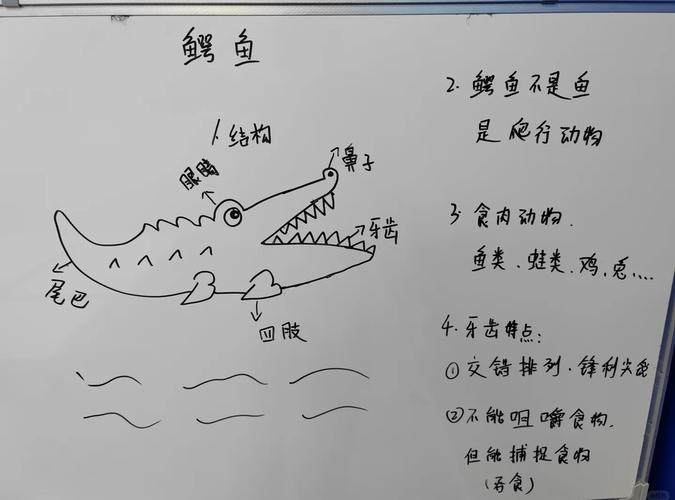 鳄鱼
1.结构
眼睛
鼻子
牙齿
尾巴
四肢
2.鳄鱼不是鱼
是爬行动物
3.食肉动物.
鱼类、蛙类、鸡、兔....
4.牙齿特点:
①交错排列.锋利尖
②不能咀嚼食物.
但能捕捉食物
(吞食)